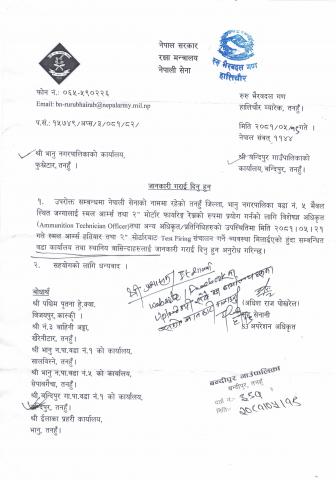 नेपाल सरकार
रक्षा मन्त्रालय
नेपाली सेना
रुरु भैरवदल गण
हालिचौर
फोन नं.: ०६५-५९०२२६
Email: bn-rurubhairab@nepalarmy.mil.np
रुरु भैरवदल गण
हालिचौर ब्यारेक, तनहुँ।
प.सं.: १५७४९/अप्स/३/०८१/८२/
मिति २०८१/०५/ गते ।
नेपाल संवत् ११४४
श्री भानु नगरपालिकाको कार्यालय,
तनहुँ ।
श्री बन्दिपुर गाउँपालिकाको
कार्यालय, बन्दिपुर, तनहुँ ।
जानकारी गराई दिनु हुन
१. उपरोक्त सम्बन्धमा नेपाली सेनाको नाममा रहेको तनहुँ जिल्ला, भानु नगरपालिका वडा नं. ५ मैबल
स्थित जग्गालाई स्मल आर्म्स तथा २" मोर्टार फायरिङ्ग रेञ्जको रुपमा प्रयोग गर्नको लागि विशेषज्ञ अधिकृत
(Ammunition Technician Officer) तथा अन्य अधिकृत/प्रतिनिधिहरुको उपस्थितिमा मिति २०८१।०५।२१
गते स्मल आर्म्स हतियार तथा २" मोर्टारबाट Test Firing संचालन गर्ने व्यवस्था मिलाईएको हुँदा सम्बन्धित
वडा कार्यालय तथा स्थानिय बासिन्दाहरुलाई जानकारी गराई दिनु हुन अनुरोध गरिन्छ।
२. सहयोगको लागि धन्यवाद ।
श्री
website / Facebook मा
(अधिश राज पोखरेल)
सेनानी
अपरेशन अधिकृत
बोधार्थ
श्री पश्चिम पृतना हे.क्वा.
विजयपुर, कास्की ।
श्री नं.३ बाहिनी अड्डा,
खैरेनीटार, तनहुँ।
श्री भानु न.पा.वडा नं.१ को कार्यालय,
तनहुँ।
श्री भानु न.पा.वडा नं.५ को कार्यालय,
तनहुँ।
श्री बन्दिपुर गा.पा.वडा नं.१ को कार्यालय,
बन्दिपुर, तनहुँ।
श्री ईलाका प्रहरी कार्यालय,
भानु, तनहुँ।
बन्दीपुर गाउँपालिका
बन्दीपुर, तनहुँ
दर्ता नं.
मिति:- २०८१/०५/१८